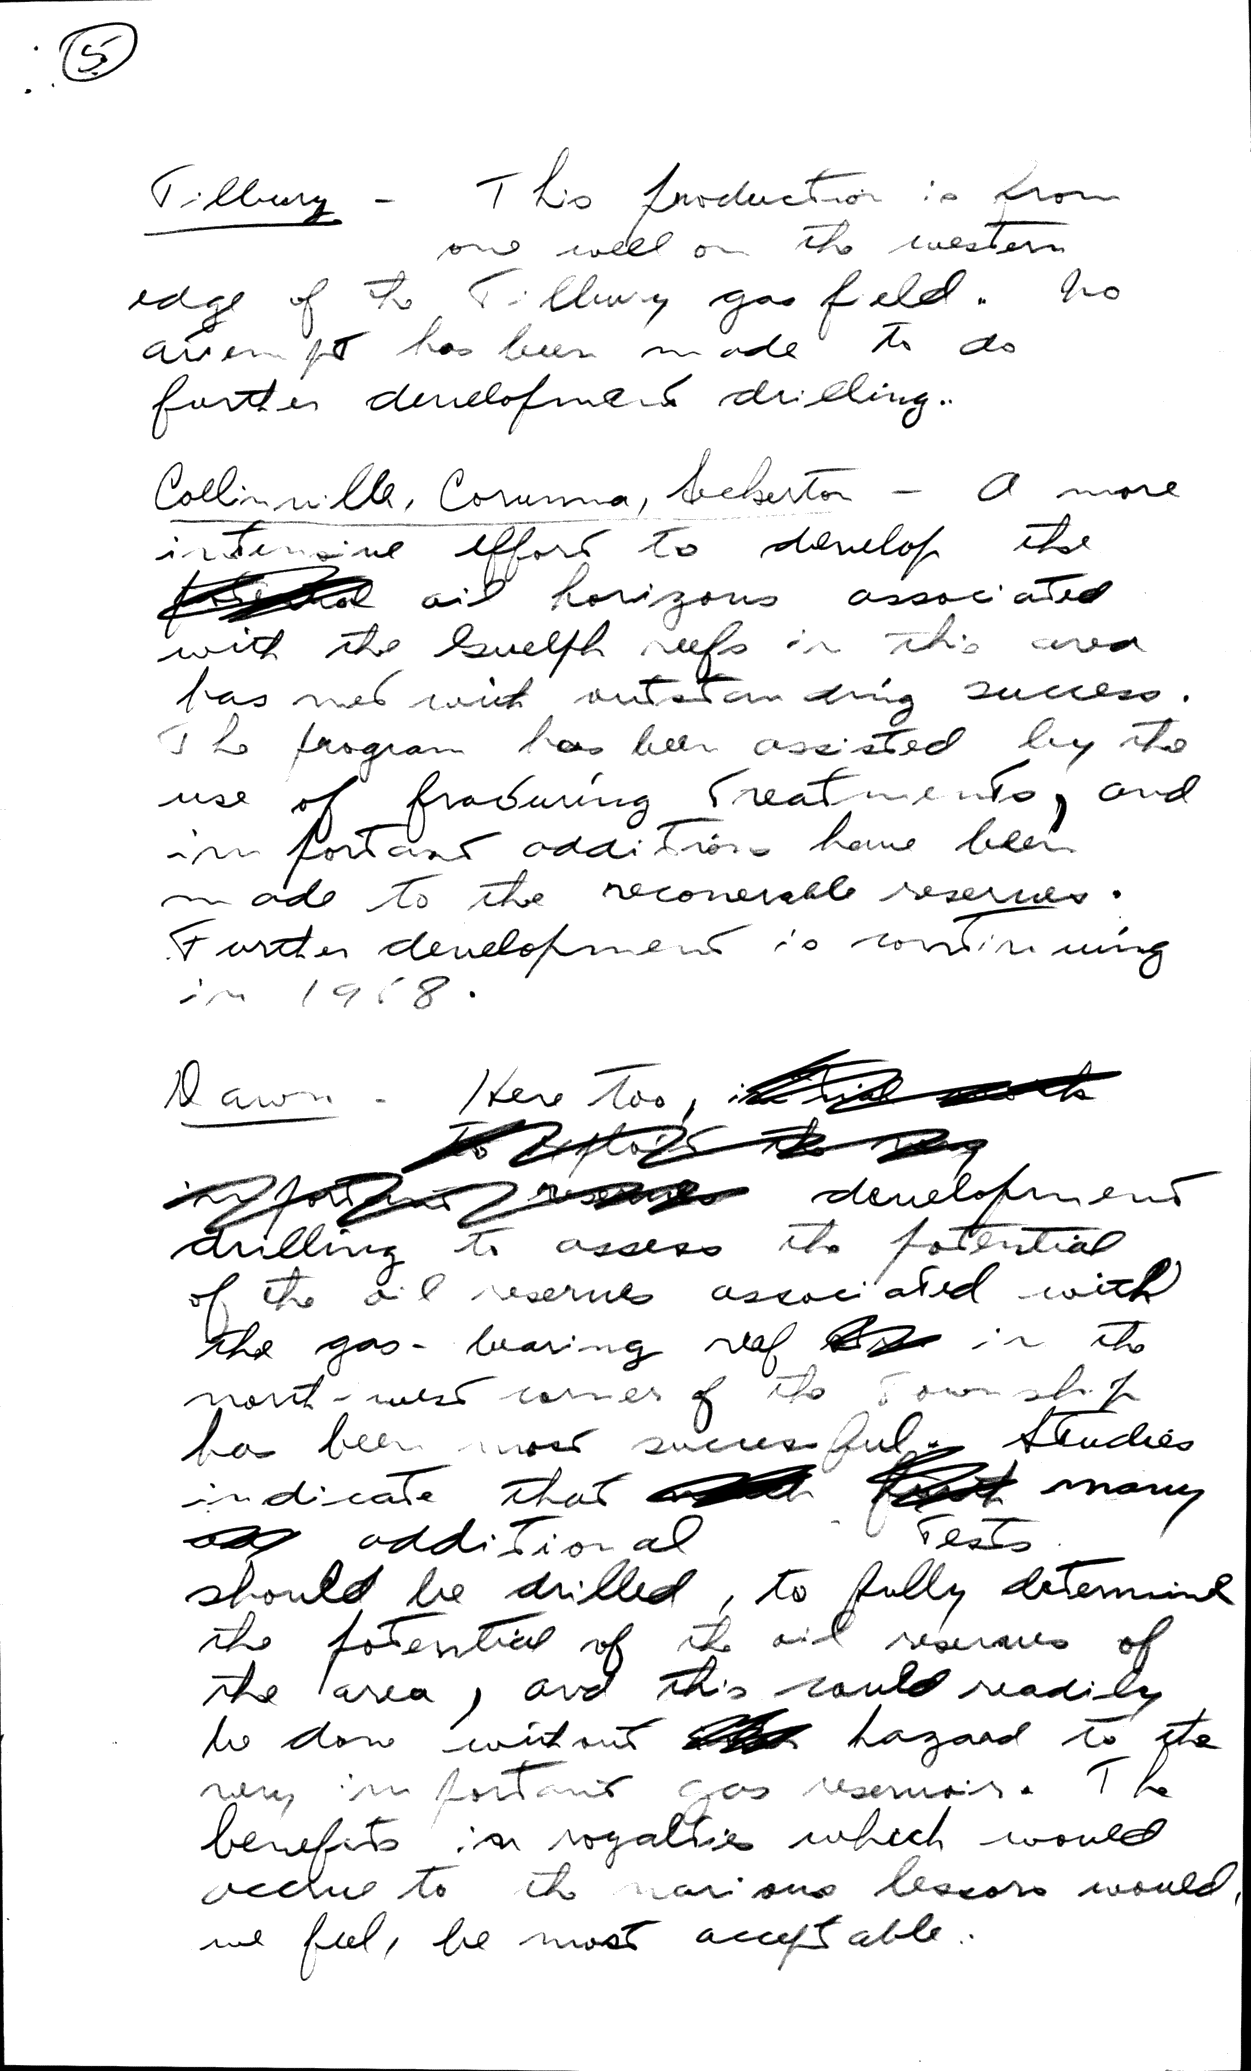 5
Tillbury - This production is from
one well on the western
edge of the Tillbury gas field. No
attempt has been made to do
further development drilling.
Collinville, Corunna, Seckerton - A more
intensive effort to develop the
potential oil horizons associated
with the Guelph reefs in this area
has met with outstanding success.
The program has been assisted by the
use of fracturing treatments, and
important additions have been
made to the recoverable reserves.
Further development is continuing
in 1968.
Dawn - Here too, initial work
to exploit the very
important reserves development
drilling to assess the potential
of the oil reserves associated with
the gas-bearing reef in the
north-west corner of the Township
has been most successful. Studies
indicate that many
additional tests
should be drilled, to fully determine
the potential of the oil reserves of
the area, and this could readily
be done without hazard to the
very important gas reservoir. The
benefits in royalties which would
accrue to the various lessors would,
we feel, be most acceptable.